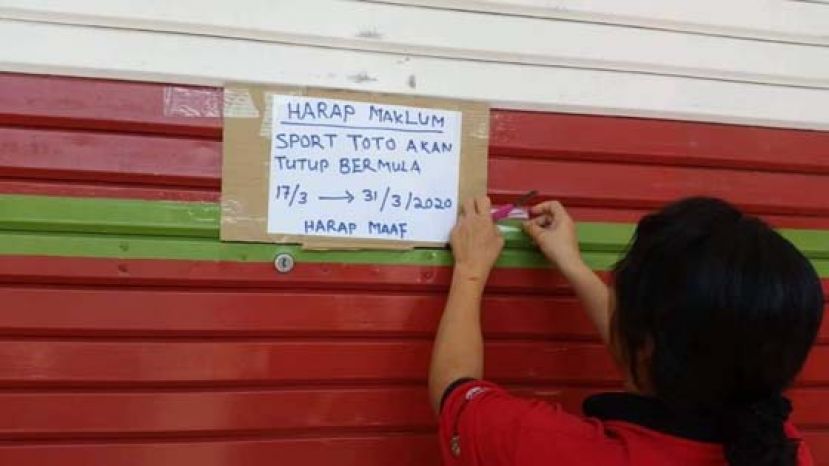 HARAP MAKLUM
SPORT TOTO AKAN
TUTUP BERMULA
17/3 → 31/3/2020
HARAP MAAF